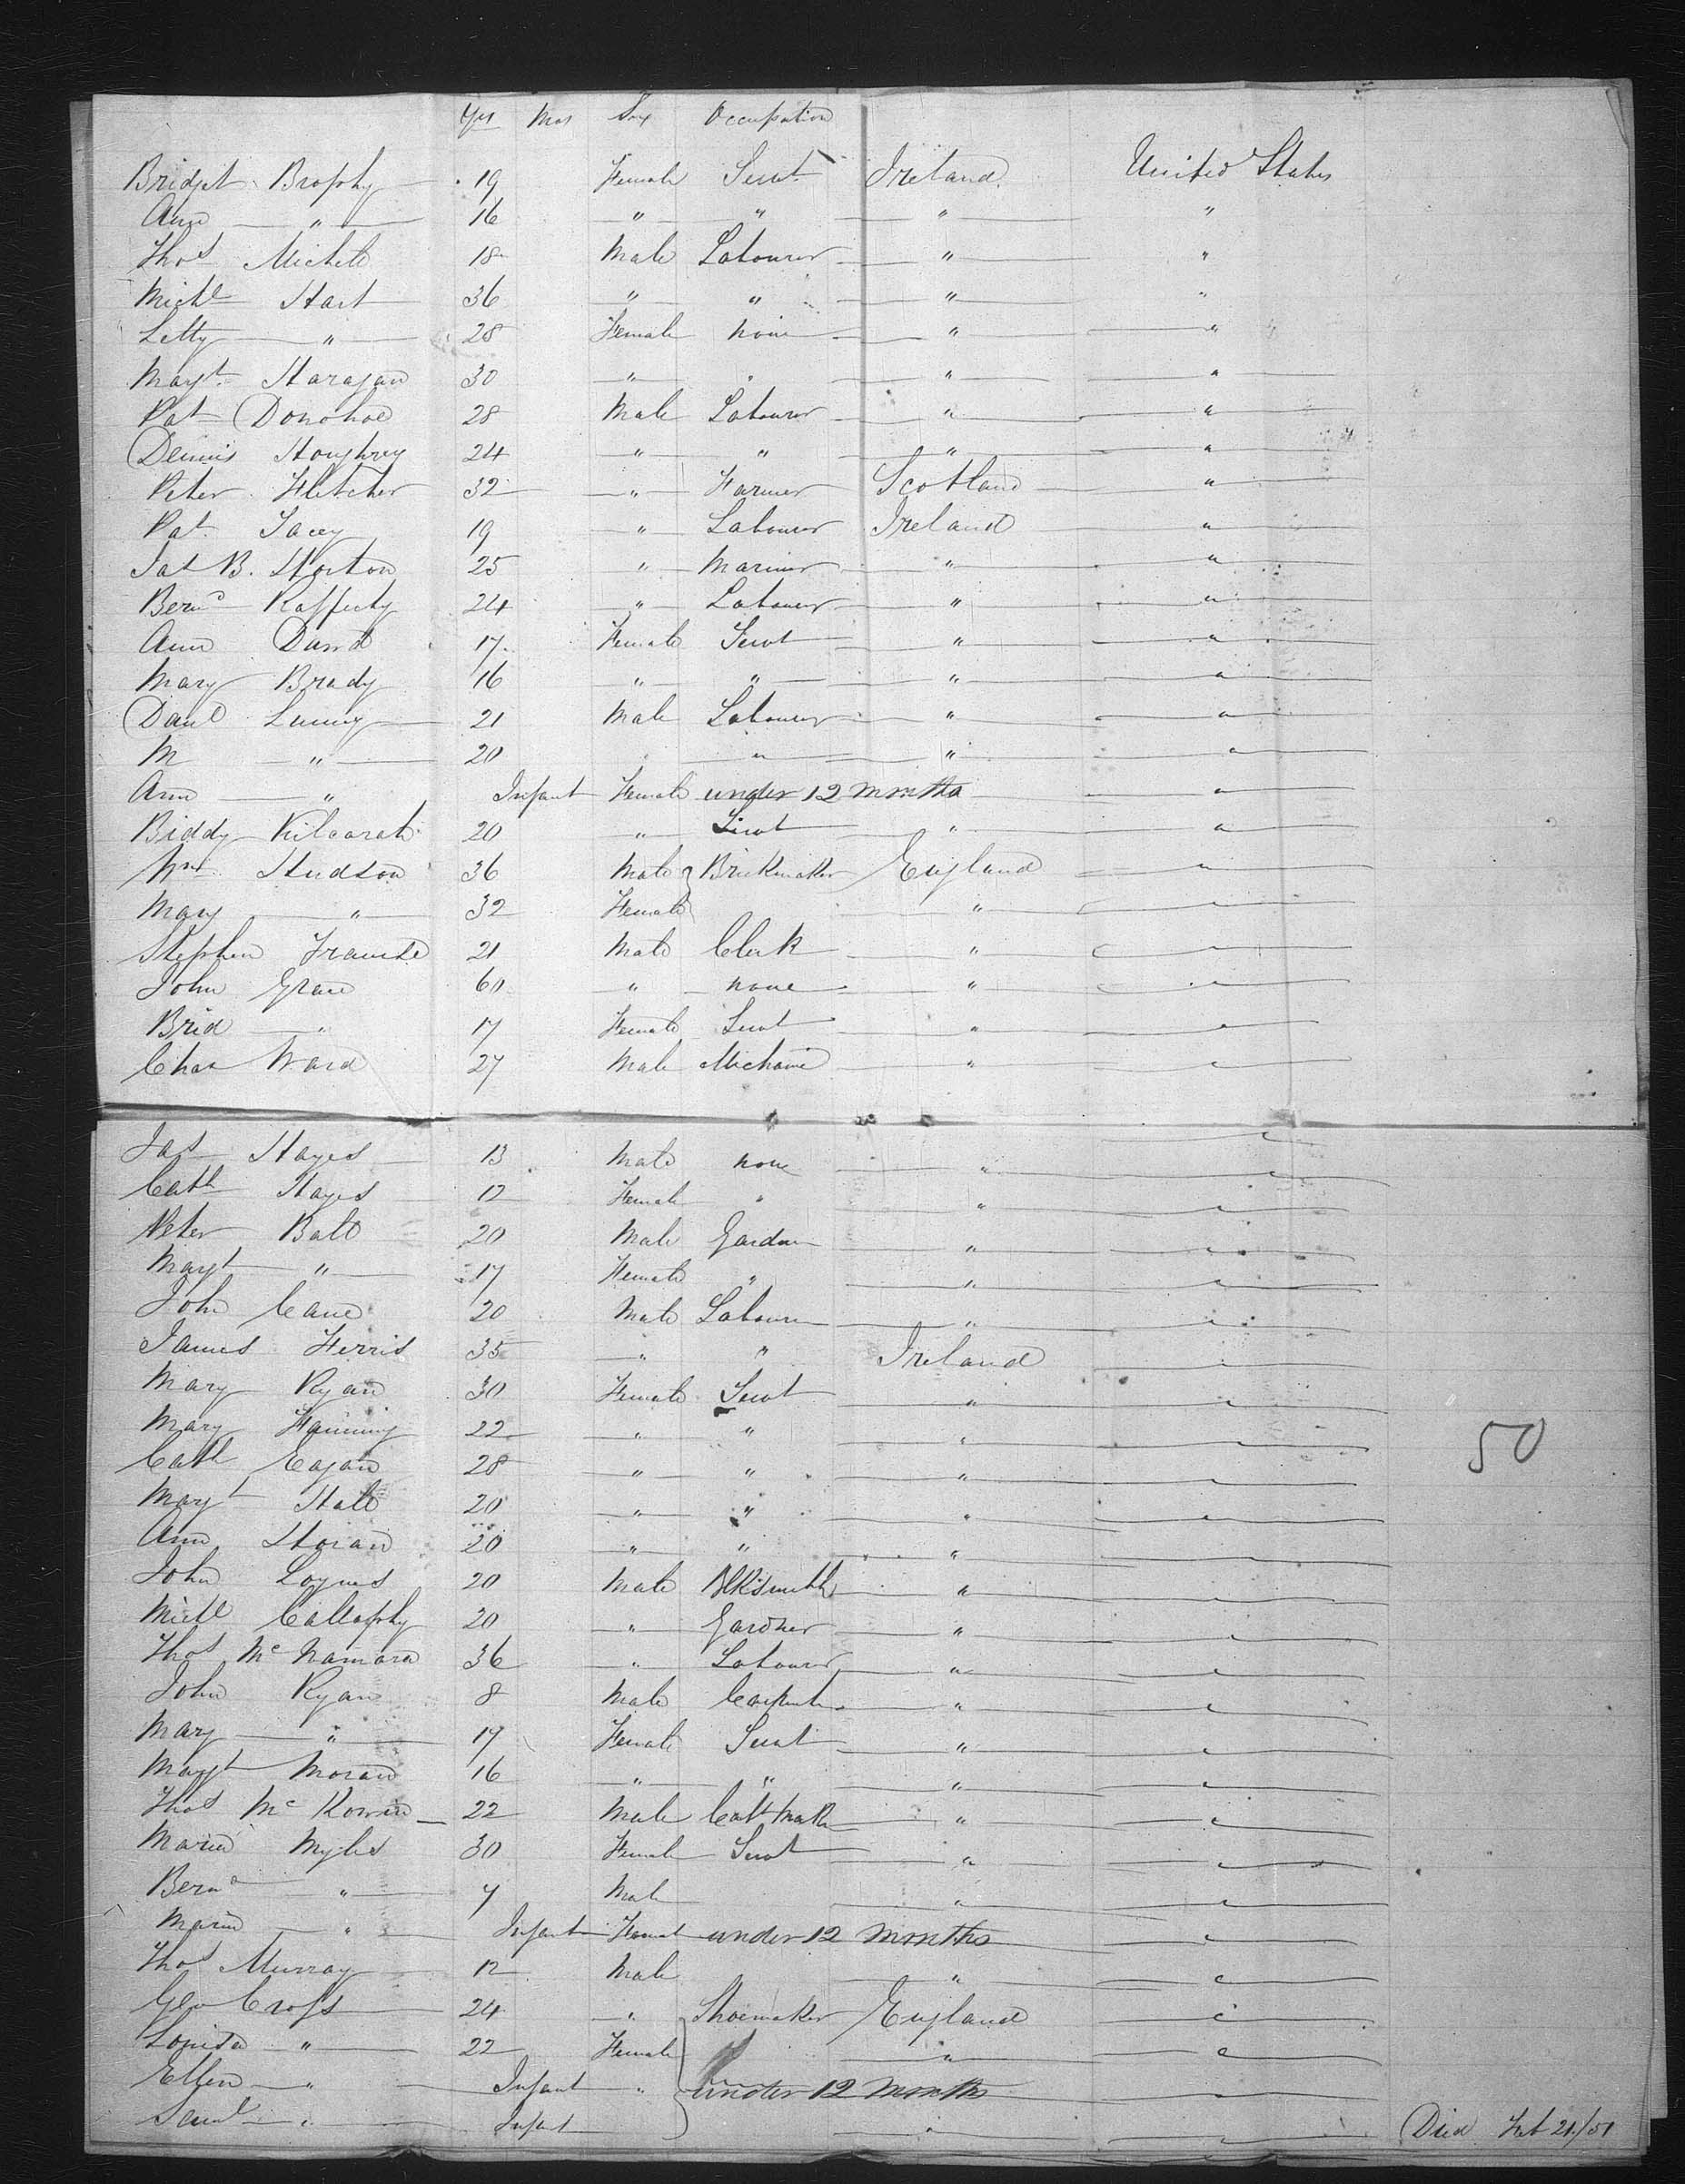 Yrs Mos Sex Occupation
Bridget Brophy 19 Female Servt Ireland United States
Ann " 16 " " " "
Thos Michell 18 Male Labourer " "
Michl Hart 36 " " " "
Letty " 28 Female none " "
Margt Haragan 30 " " " "
Pat Donohoe 28 Male Labourer " "
Dennis Houghrey 24 " " " "
Peter Fletcher 32 " Farmer Scotland "
Pat Tacey 19 " Labourer Ireland "
Jas B. Horton 25 " Mariner " "
Bernd Rafferty 24 " Labourer " "
Ann David 17 Female Servt " "
Mary Brady 16 " " " "
Danl Lunny 21 Male Labourer " "
M " 20 " " "
Ann " Infant Female under 12 months "
Biddy 20 " Servt " "
Wm Hudson 36 Male Brickmaker England "
Mary " 32 Female " "
Stephen 21 Male Clerk " "
John Grace 60 " none " "
Brid " 17 Female Servt " "
Chas Ward 27 Male Mechanic " "
Jas Hayes 13 Male none " "
Cath Hayes 12 Female " " "
Peter Balt 20 Male Gardner " "
Margt " 17 Female " " "
John Cane 20 Male Labourer " "
James Ferris 35 " " Ireland "
Mary Ryan 30 Female Servt " "
Mary Fanning 22 " " " "
Cath Eagan 28 " " " "
50
Margt Hall 20 " " " "
Ann Horan 20 " " " "
John Loynes 20 Male Blksmith " "
Michl Callaphy 20 " Gardner " "
Thos McNamara 36 " Labourer " "
John Ryan 8 Male Carpenter " "
Mary " 17 Female Servt " "
Margt Moran 16 " " " "
Thos McKowen 22 Male " "
Maria Myles 30 Female Servt " "
Bernd " 7 Male " "
Maria " Infant Femal under 12 months "
Thos Murray 12 Male " "
Geo Cross 24 " Shoemaker England "
Louisa " 22 Female " "
Ellen " Infant " under 12 months "
Saml " Infant " " Died Feb 21/51